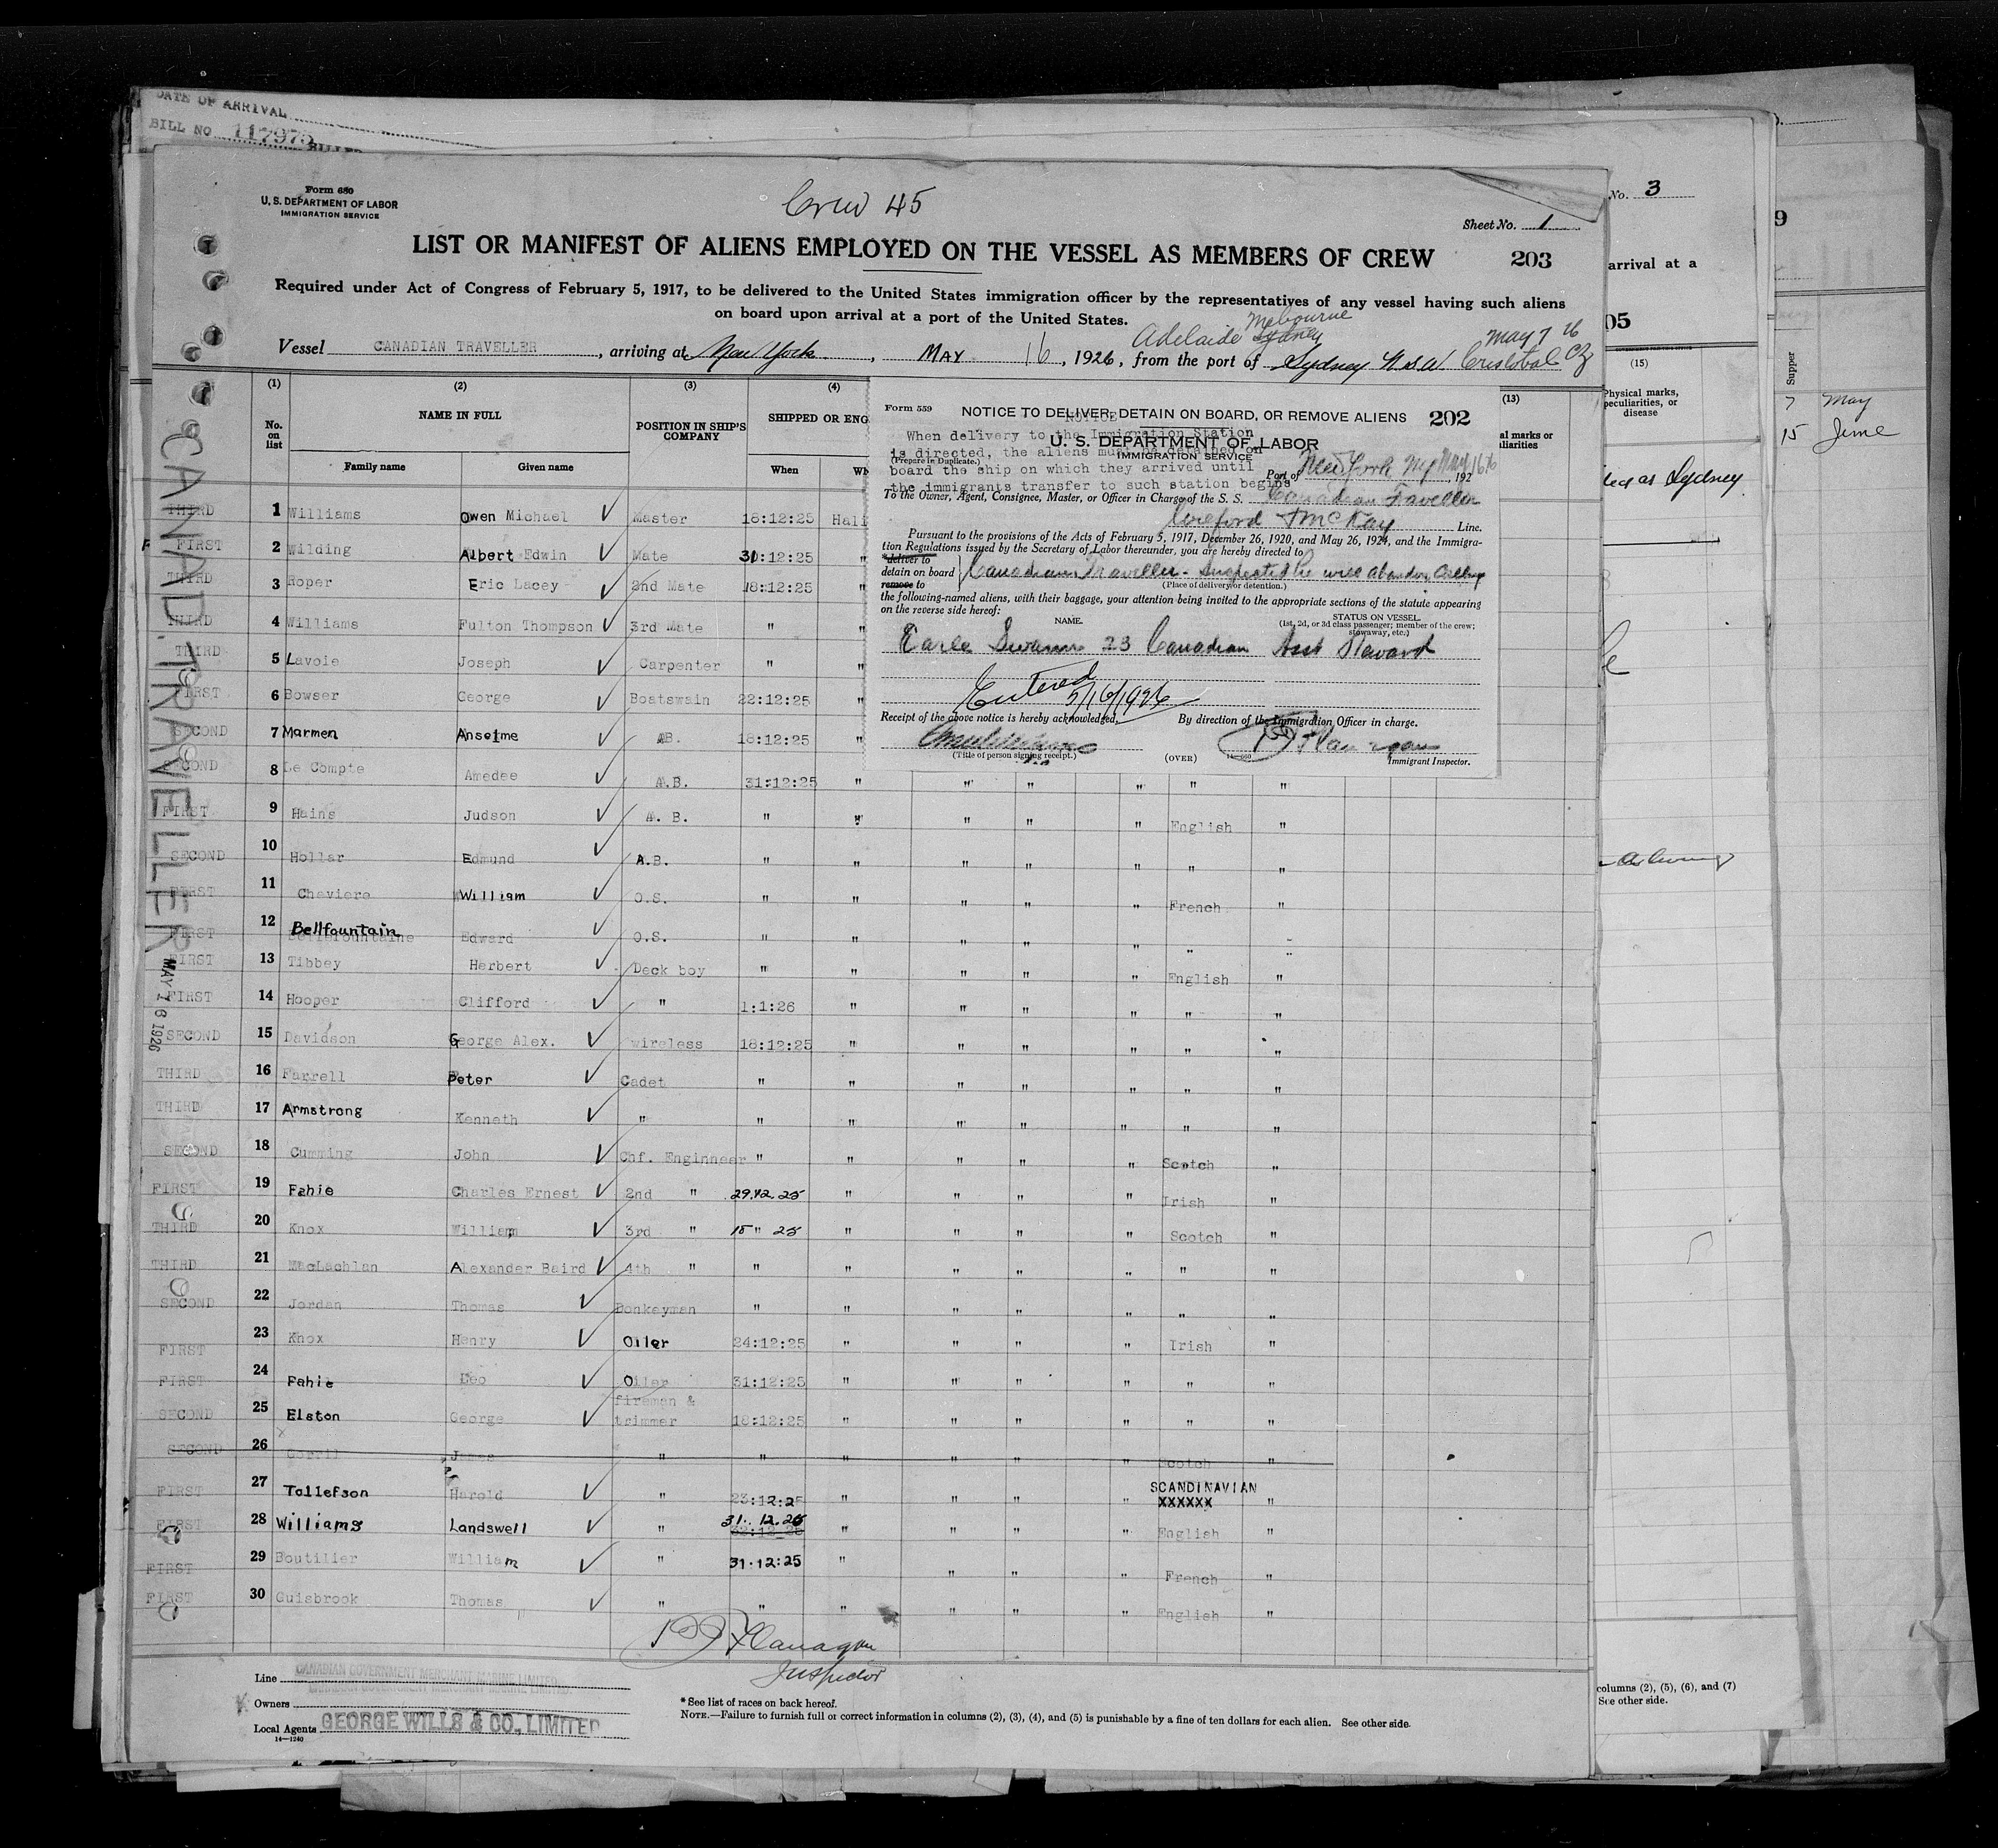 DATE OF ARRIVAL
BILL NO 117975
Form 680
U. S. DEPARTMENT OF LABOR
IMMIGRATION SERVICE
Crew 45
Sheet No. 1
LIST OR MANIFEST OF ALIENS EMPLOYED ON THE VESSEL AS MEMBERS OF CREW
203
Required under Act of Congress of February 5, 1917, to be delivered to the United States immigration officer by the representatives of any vessel having such aliens
on board upon arrival at a port of the United States.
Adelaide Melbourne Sydney May 7 26
Vessel CANADIAN TRAVELLER, arriving at New York, MAY 16, 1926, from the port of Sydney N.S.W. Cristobal CZ
(1) (2) (3) (4) (13)
No. on list NAME IN FULL POSITION IN SHIP'S COMPANY SHIPPED OR ENG
Family name Given name When Wh
al marks or
liarities
CANAD. TRAVELLER MAY 16 1926
THIRD 1 Williams Owen Michael ✓ Master 18:12:25 Hali
FIRST 2 Wilding Albert Edwin ✓ Mate 31:12:25 "
THIRD 3 Roper Eric Lacey ✓ 2nd Mate 18:12:25 "
THIRD 4 Williams Fulton Thompson ✓ 3rd Mate " "
THIRD 5 Lavoie Joseph ✓ Carpenter " "
FIRST 6 Bowser George ✓ Boatswain 22:12:25 "
SECOND 7 Marmen Anselme ✓ AB. 18:12:25 "
SECOND 8 Le Compte Amedee ✓ A.B. 31:12:25 " " " " " "
FIRST 9 Hains Judson ✓ A. B. " " " " " English "
SECOND 10 Hollar Edmund ✓ A.B. " " " " " " "
FIRST 11 Cheviere William ✓ O.S. " " " " " French "
FIRST 12 Bellfountain Edward ✓ O.S. " " " " " " "
FIRST 13 Tibbey Herbert ✓ Deck boy " " " " " English "
FIRST 14 Hooper Clifford ✓ " 1:1:26 " " " " " "
SECOND 15 Davidson George Alex. ✓ wireless 18:12:25 " " " " " "
THIRD 16 Farrell Peter ✓ Cadet " " " " " " "
THIRD 17 Armstrong Kenneth ✓ " " " " " " " "
SECOND 18 Cumming John ✓ Chf. Enginneer " " " " " Scotch "
FIRST 19 Fahie Charles Ernest ✓ 2nd " 29.12.25 " " " " Irish "
THIRD 20 Knox William ✓ 3rd " 18 " 25 " " " " Scotch "
THIRD 21 MacLachlan Alexander Baird ✓ 4th " " " " " " " "
SECOND 22 Jordan Thomas ✓ Donkeyman " " " " " " "
FIRST 23 Knox Henry ✓ Oiler 24:12:25 " " " " Irish "
FIRST 24 Fahie Leo ✓ Oiler 31:12:25 " " " " " "
fireman &
SECOND 25 Elston George ✓ trimmer 18:12:25 " " " " " "
SECOND 26 Gorril James " " " " " " Scotch "
FIRST 27 Tollefson Harold ✓ " 23:12:25 " " " " SCANDINAVIAN XXXXXX "
FIRST 28 Williams Landswell ✓ " 31.12.25 " " " " English "
FIRST 29 Boutilier William ✓ " 31.12:25 " " " " French "
FIRST 30 Guisbrook Thomas ✓ " " " " " " English "
Flanagan
Inspector
Line CANADIAN GOVERNMENT MERCHANT MARINE LIMITED.
Owners
Local Agents GEORGE WILLS & CO., LIMITED
14—1240
* See list of races on back hereof.
NOTE.—Failure to furnish full or correct information in columns (2), (3), (4), and (5) is punishable by a fine of ten dollars for each alien. See other side.
Form 559
NOTICE TO DELIVER, DETAIN ON BOARD, OR REMOVE ALIENS 202
NOTICE
When delivery to the Immigration Station
is directed, the aliens must be detained on
board the ship on which they arrived until
the immigrants transfer to such station begins
U. S. DEPARTMENT OF LABOR
IMMIGRATION SERVICE
(Prepare in Duplicate.)
Port of New York NY May 16th, 192
To the Owner, Agent, Consignee, Master, or Officer in Charge of the S. S. Canadian Traveller
McKay Line.
Pursuant to the provisions of the Acts of February 5, 1917, December 26, 1920, and May 26, 1924, and the Immigra-
tion Regulations issued by the Secretary of Labor thereunder, you are hereby directed to
*deliver to
detain on board
remove to
Canadian Traveller - Suspected he will abandon calling
(Place of delivery or detention.)
the following-named aliens, with their baggage, your attention being invited to the appropriate sections of the statute appearing
on the reverse side hereof:
NAME. STATUS ON VESSEL.
(1st, 2d, or 3d class passenger; member of the crew;
stowaway, etc.)
Earle Swann 23 Canadian Asst Steward
Entered
5/16/1926
Receipt of the above notice is hereby acknowledged, By direction of the Immigration Officer in charge.
Flanagan
(Title of person signing receipt.) (OVER) Immigrant Inspector.
No. 3
arrival at a
05
(15)
Physical marks,
peculiarities, or
disease
as Sydney
columns (2), (5), (6), and (7)
See other side.
9
Supper
7 May
15 June